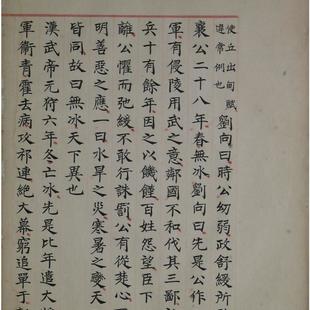 使丘出甸賦
違常例也
劉向曰時公幼弱政舒緩所
襄公二十八年春無冰劉向曰先是公作
軍有侵陵用武之意鄰國不和伐其三鄙
兵十有餘年因之以饑饉百姓怨望臣下
離公懼而弛緩不敢行誅罰公有從楚心
明善惡之應一曰水旱之災寒暑之變天
皆同故曰無冰天下異也
漢武帝元狩六年冬亡冰先是比年遣大將
軍衛青霍去病攻祁連絕大幕窮追單于